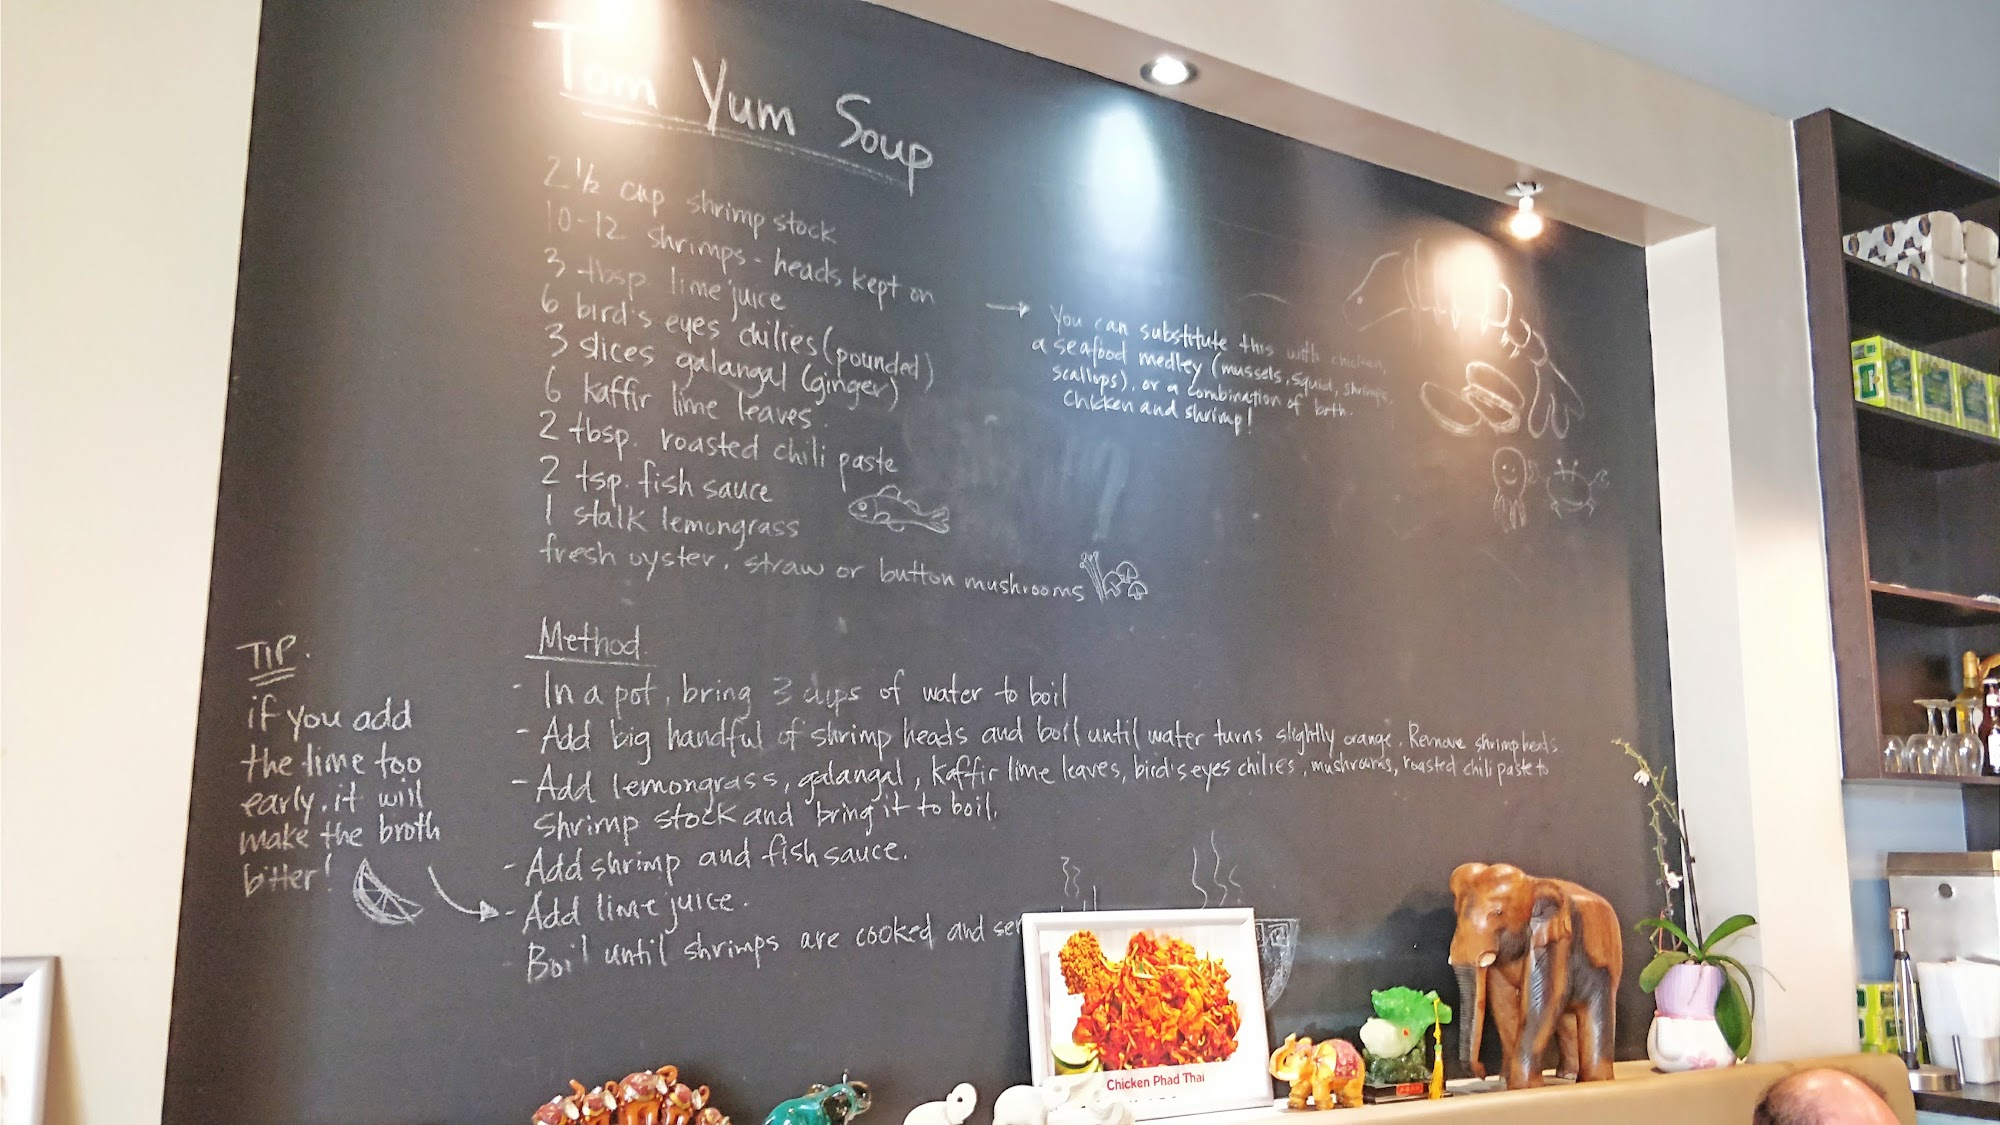 Tom Yum Soup
2 1/2 cup shrimp stock
10-12 shrimps - heads kept on
3 tbsp lime juice
6 bird's eyes chilies (pounded)
3 slices galangal (ginger)
6 kaffir lime leaves
2 tbsp. roasted chili paste
2 tsp. fish sauce
1 stalk lemongrass
fresh oyster, straw or button mushrooms
→ You can substitute this with chicken,
a seafood medley (mussels, squid, shrimps,
scallops), or a combination of both.
Chicken and shrimp!
Method
- In a pot, bring 3 cups of water to boil
- Add big handful of shrimp heads and boil until water turns slightly orange. Remove shrimp heads.
- Add lemongrass, galangal, kaffir lime leaves, bird's eyes chilies, mushrooms, roasted chili paste to
shrimp stock and bring it to boil.
- Add shrimp and fish sauce.
- Add lime juice.
- Boil until shrimps are cooked and ser
TIP.
if you add
the lime too
early, it will
make the broth
bitter!
Chicken Phad Thai